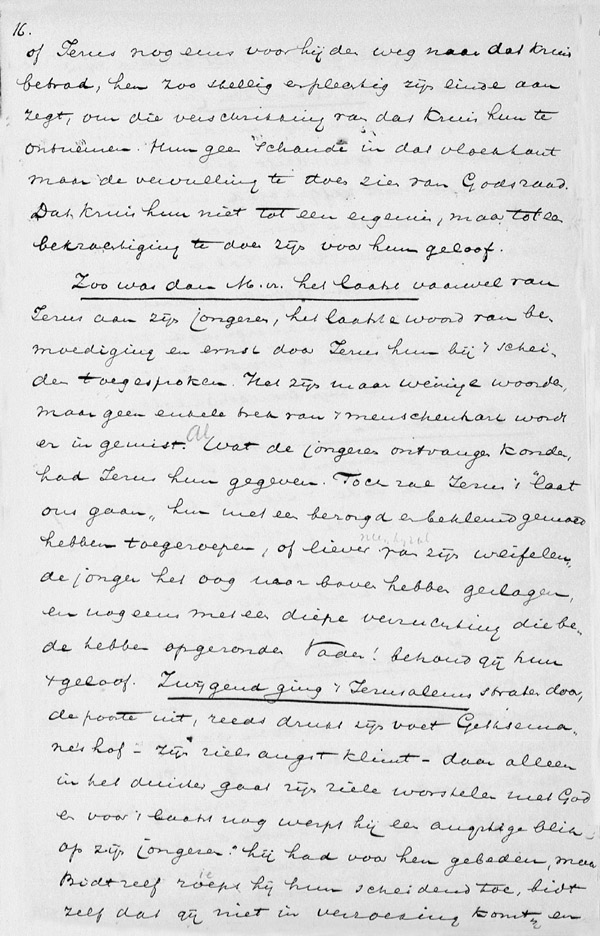 16.
of Jezus nog eens voor hij den weg naar dat kruis
betrad, hen zoo stellig en plechtig zijn einde aan
zegt, om die verschrikking van dat kruis hun te
ontnemen. Hun geen schande in dat vloekhout
maar de vervulling te doen zien van Godsraad.
Dat kruis hun niet tot een ergernis, maar tot een
bekrachtiging te doen zijn voor hun geloof.
Zoo was dan M. vr. het laatst vaarwel van
Jezus aan zijn jongeren, het laatste woord van be-
moediging en ernst door Jezus hun bij 't schei-
den toegesproken. Het zijn maar weinige woorden,
maar geen enkele trek van 't menschenhart wordt
er in gemist. Al wat de jongeren ontvangen konden,
had Jezus hun gegeven. Toch zal Jezus 't "laat
ons gaan" hun met een bezorgd en beklemd gemoed
hebben toegeroepen, of liever van zijn weifelen-
de jongeren het oog naar boven hebben geslagen,
en nog eens met een diepe verzuchting die be-
de hebben opgezonden Vader! behoud gij hun
't geloof. Zwijgend ging 't Jerusalems straten door,
de poorte uit, reeds drukt zijn voet Gethsema-
ne's hof - zijn zielsangst klimt - daar alleen
in het duister gaat zijn ziele worstelen met God
en voor 't laatst nog werpt hij een angstige blik
op zijn jongeren. hij had voor hen gebeden, maar
Bidt zelf roept hij hun scheidend toe, bidt
zelf dat gij niet in verzoeking komt, en